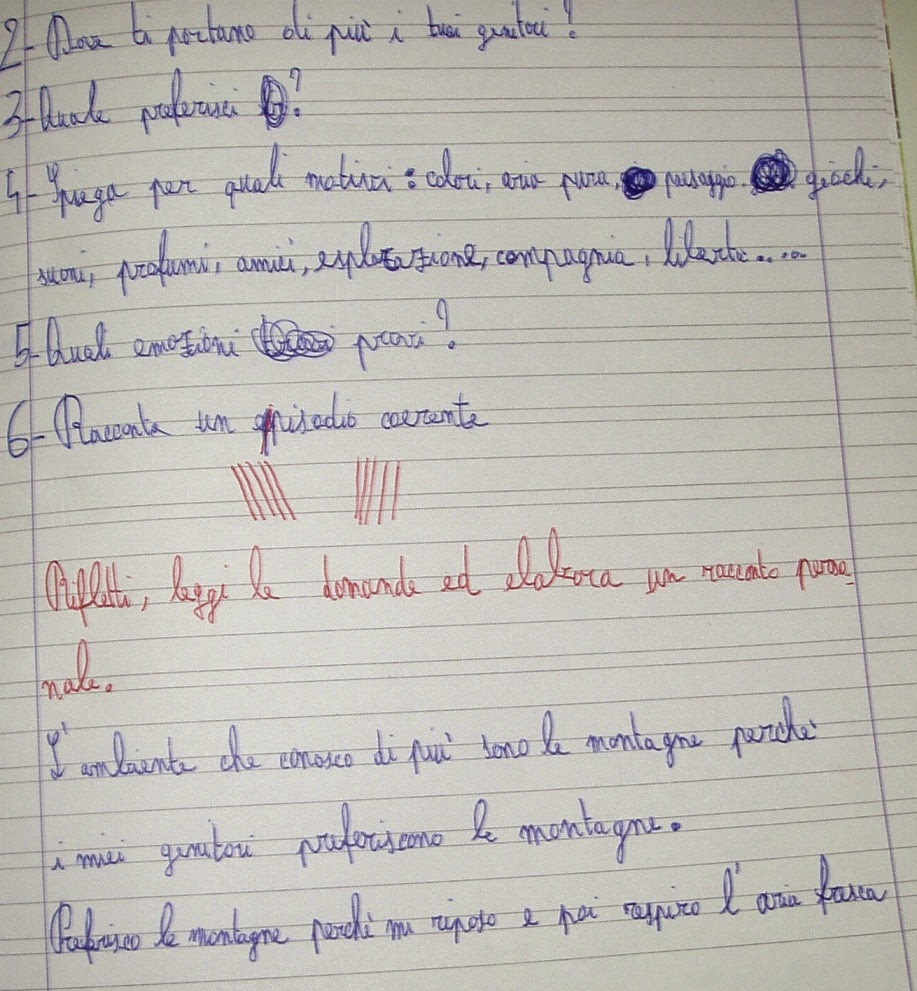 2- Dove ti portano di più i tuoi genitori?
3- Quale preferisci ?
4- Spiega per quali motivi: colori, aria pura, paesaggio. giochi,
suoni, profumi, amici, esplorazione, compagnia, libertà.....
5- Quali emozioni provi?
6- Racconta un episodio coerente
Rifletti, leggi le domande ed elabora un racconto perso_
nale.
L'ambiente che conosco di più sono le montagne perché
i miei genitori preferiscono le montagne.
Preferisco le montagne perché mi riposo e poi respiro l'aria fresca